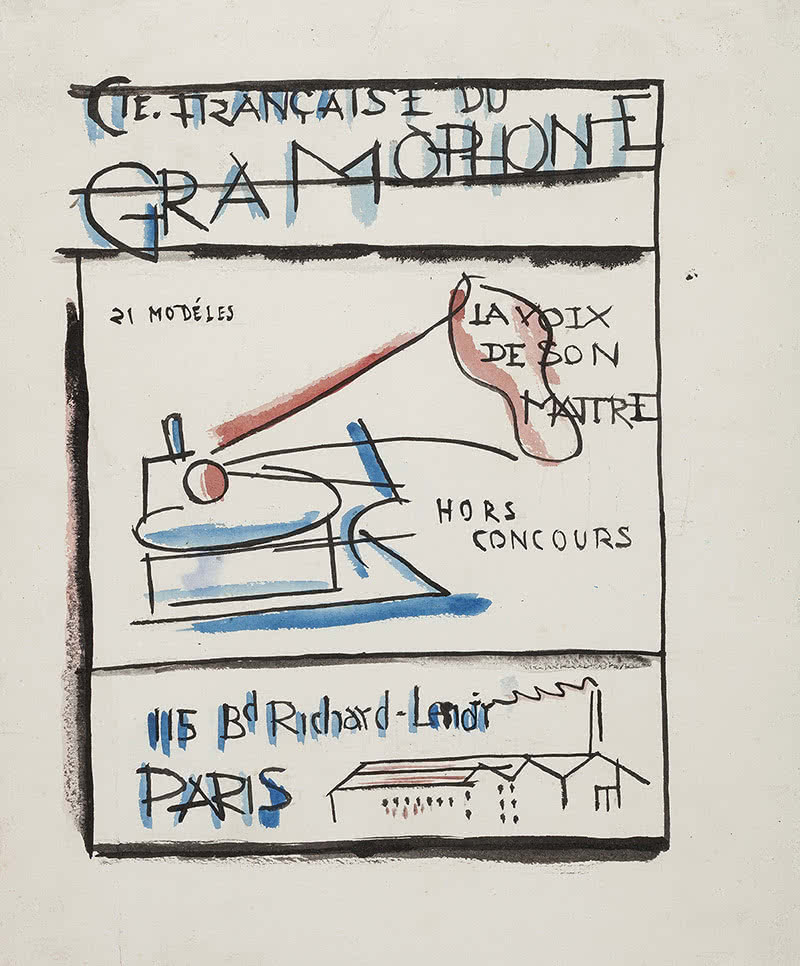 CIE. FRANÇAISE DU
GRAMOPHONE
21 MODÉLES
LA VOIX
DE SON
MAITRE
HORS
CONCOURS
115 Bd Richard-Lenoir
PARIS